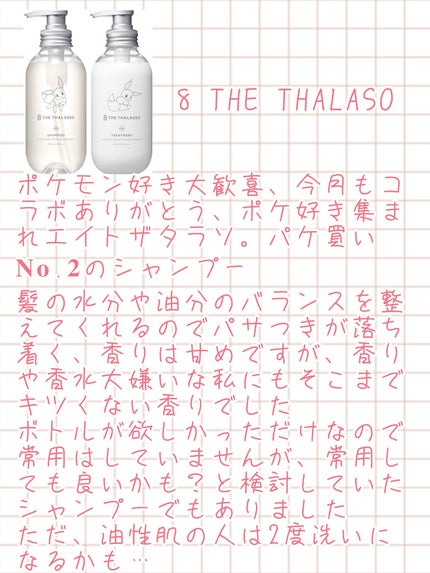 8 THE THALASSO
SHAMPOO
8 THE THALASSO
TREATMENT
8 THE THALASO
ポケモン好き大歓喜、今月もコ
ラボありがとう、ポケ好き集ま
れエイトザタラソ。パケ買い
No.2のシャンプー
髪の水分や油分のバランスを整
えてくれるのでパサつきが落ち
着く、香りは甘めですが、香り
や香水大嫌いな私にもそこまで
キツくない香りでした
ボトルが欲しかっただけなので
常用はしていませんが、常用し
ても良いかも?と検討していた
シャンプーでもありました
ただ、油性肌の人は2度洗いに
なるかも…